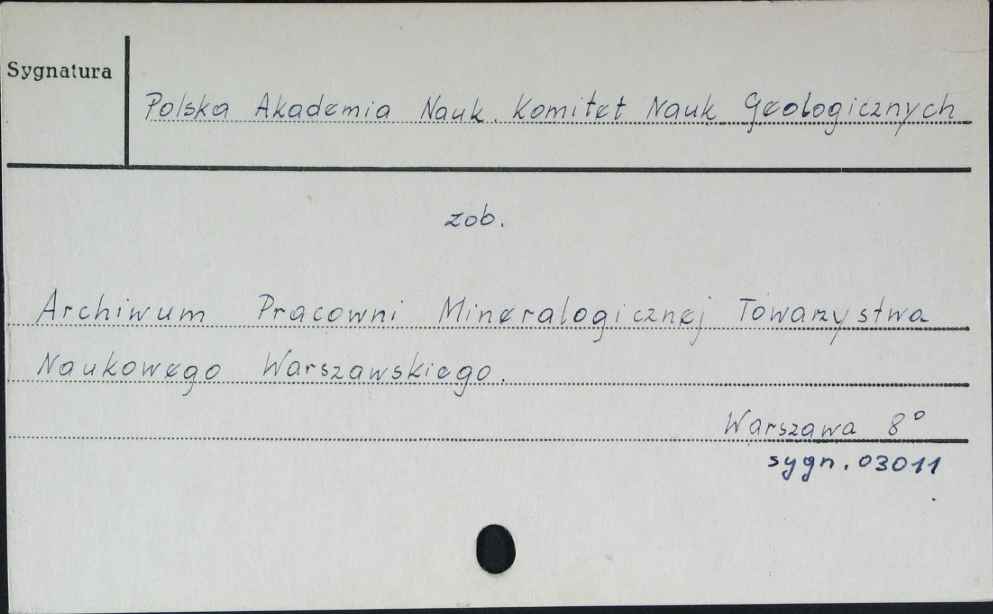 Sygnatura
Polska Akademia Nauk. Komitet Nauk Geologicznych
zob.
Archiwum Pracowni Mineralogicznej Towarzystwa
Naukowego Warszawskiego.
Warszawa 8°
sygn. 03011